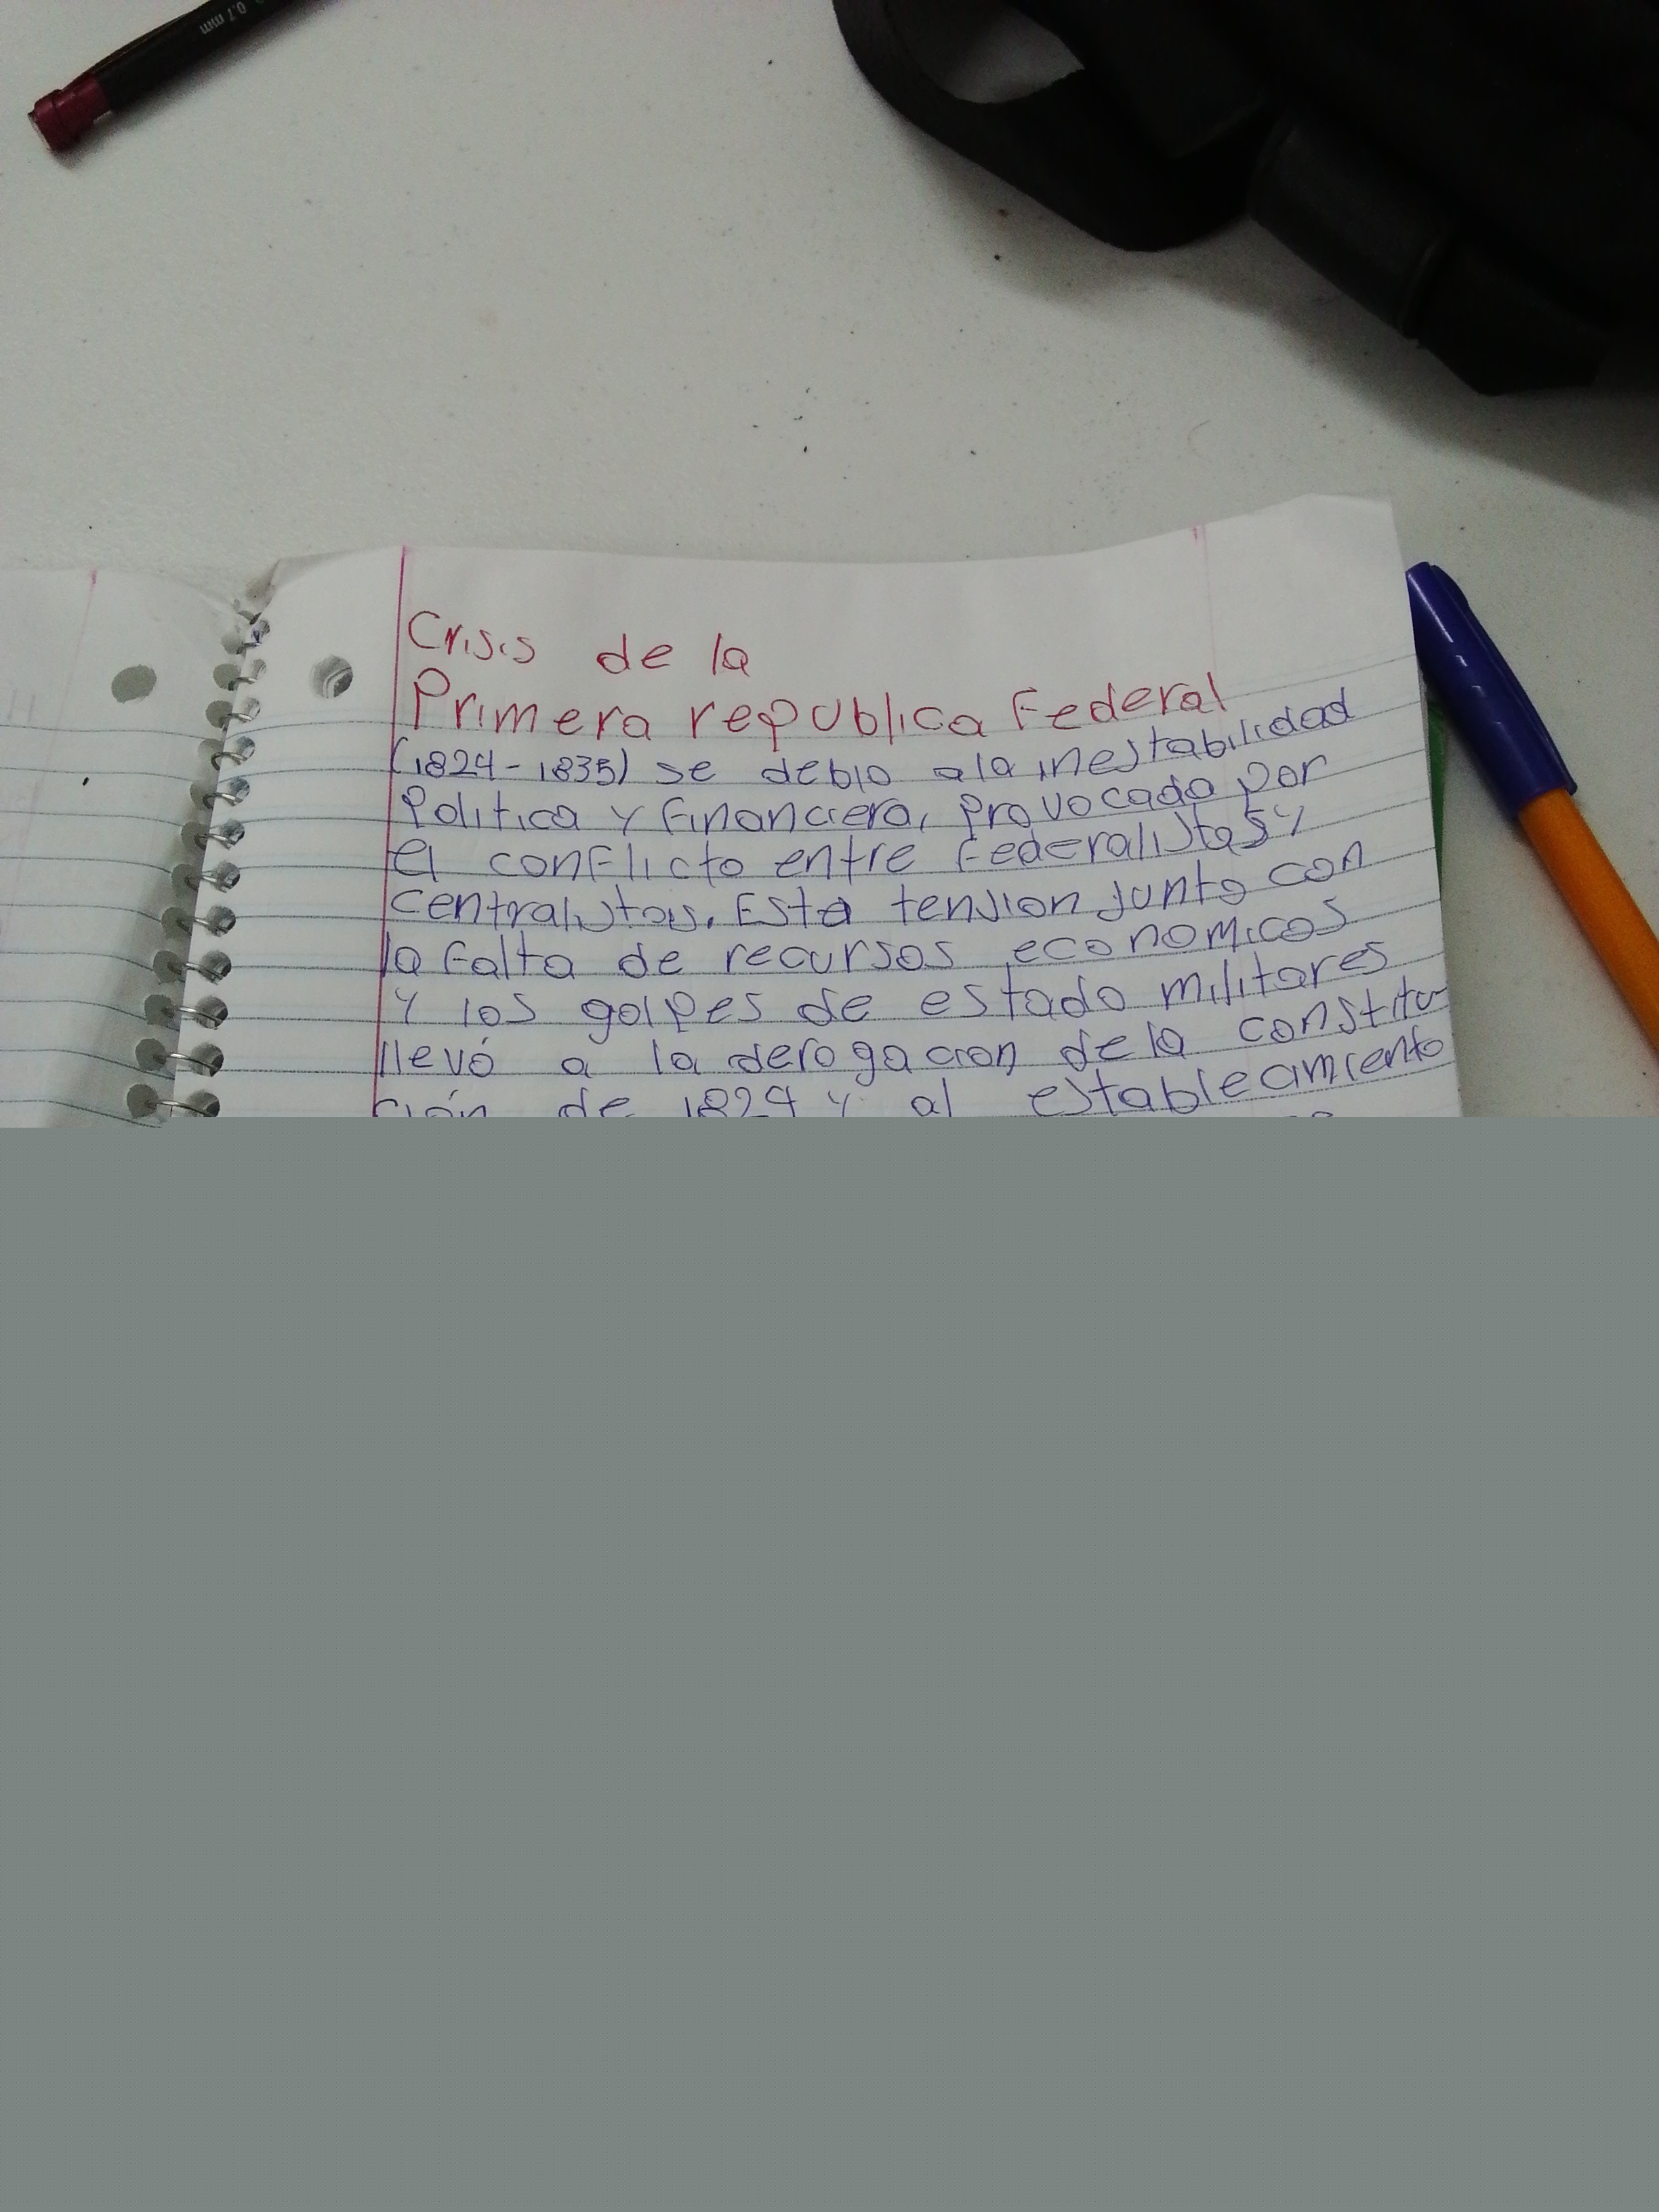 0.7 mm
Crisis de la
Primera republica Federal
(1824-1835) se debio a la inestabilidad
Politica y Financiera, provocada por
el conflicto entre Federalistas y
centralistas. Esta tension junto con
la falta de recursos economicos
y los golpes de estado militares
llevó a la derogacion de la constitu-
ción de 1824 y al establecimiento